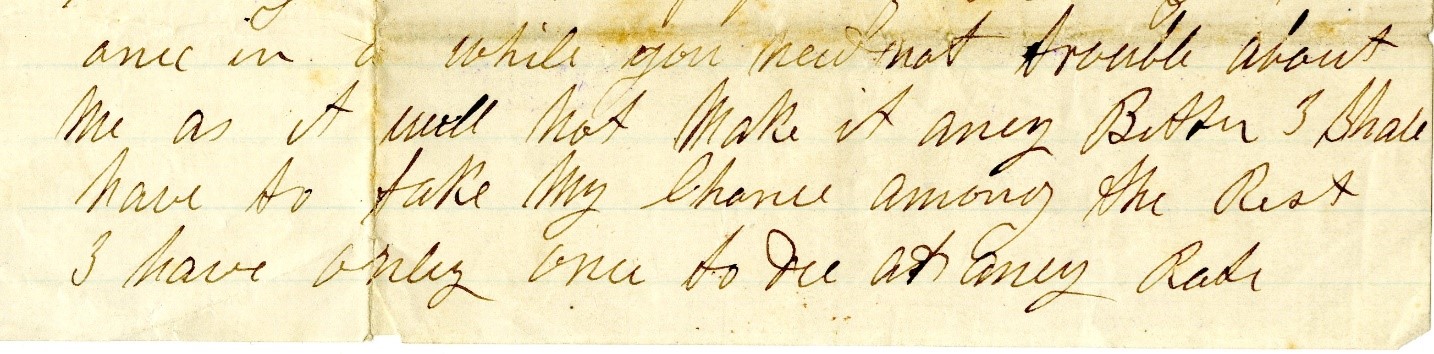 once in a while you need not trouble about
me as it will not Make it aney Better I Shall
have to take My Chance among the Rest
I have onley once to Die at aney Rate